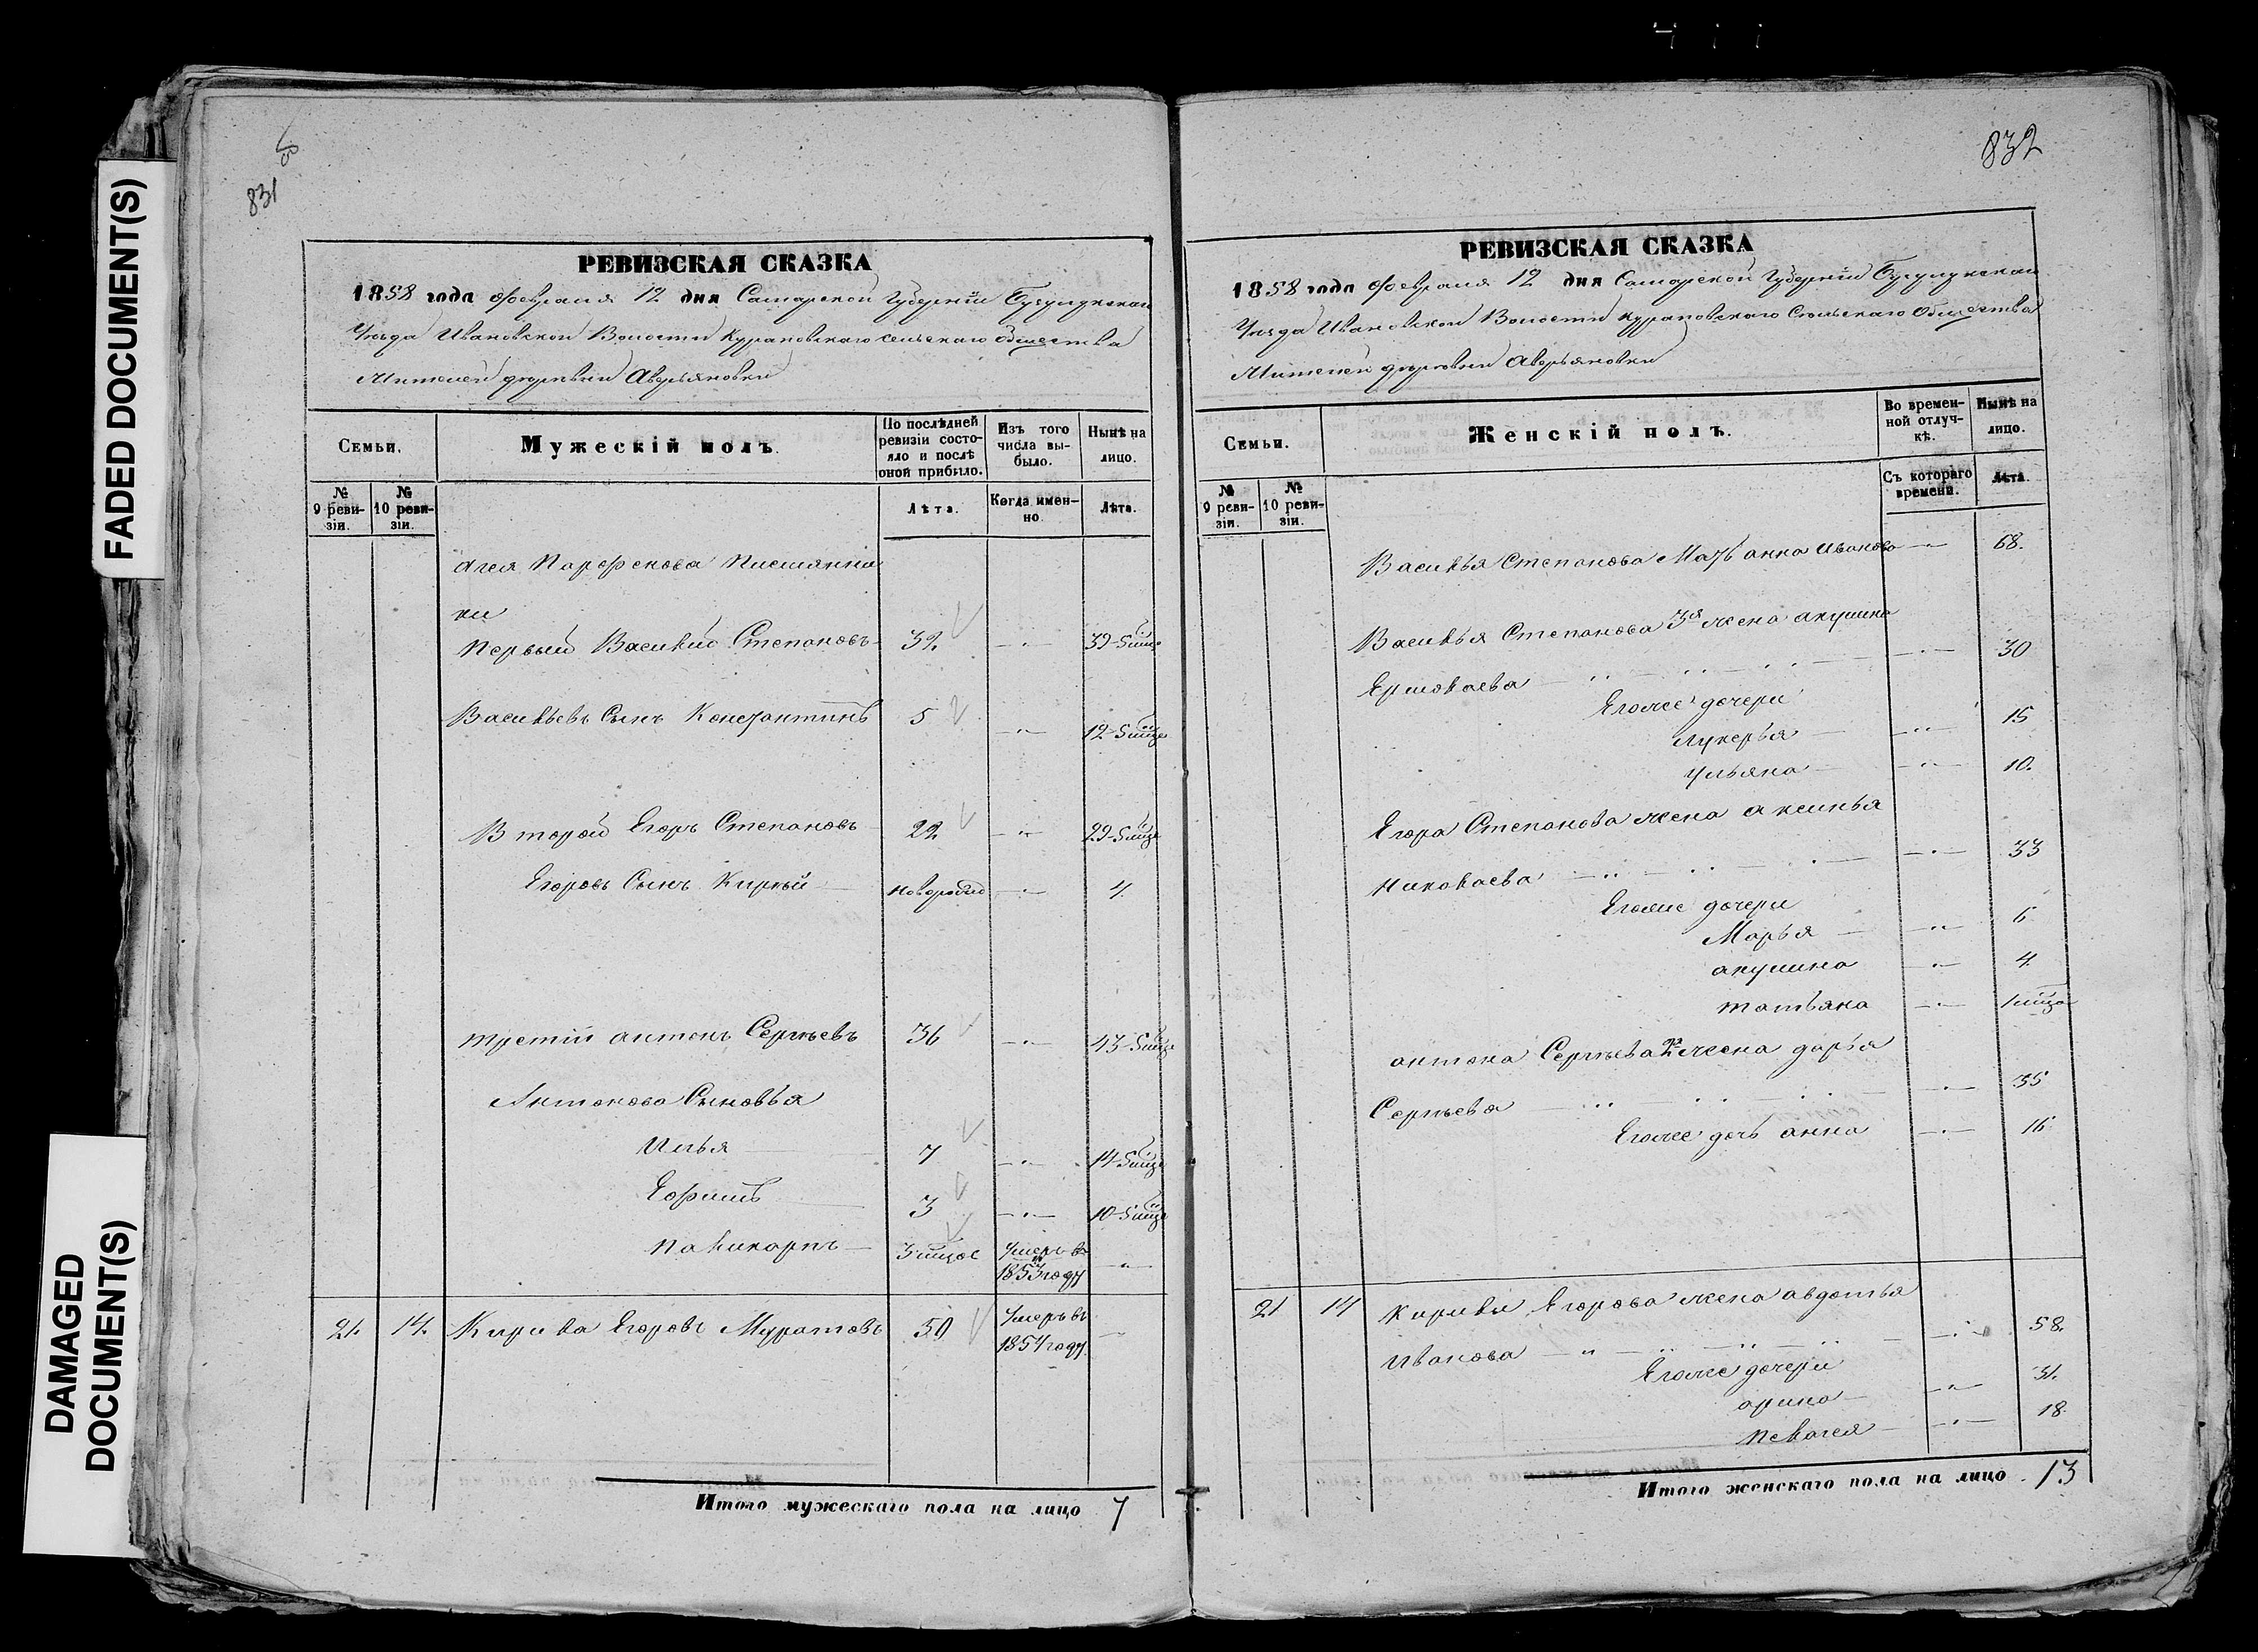 411
FADED DOCUMENT(S)
DAMAGED
DOCUMENT(S)
831
РЕВИЗСКАЯ СКАЗКА
1858 года февраля 12 дня Самарской Губерніи Бугурусланскаго
Уѣзда Ивановской Волости Кураповскаго сельскаго общества
Жителей деревни Аверьяновки
Семьи.
Мужескій полъ.
По послѣдней ревизіи состояло и послѣ оной прибыло.
Изъ того числа выбыло.
Нынѣ на лицо.
№ 9 ревизіи.
№ 10 ревизіи.
Лѣта.
Когда именно
Лѣта.
Парфенова Племянни
ки
Первый Василий Степановъ 32 — " — 39 - 5 мѣце
Васильевъ Сынъ Константинъ 5 — " — 12 - 5 мѣце
Второй Егоръ Степановъ 22 — " — 29 - 5 мѣце
Егоровъ Сынъ Кирѣй новорожд — " — 4
третий антонъ Сергѣевъ 36 — " — 43 - 5 мѣце
Антонова Сыновья
Илья 7 — " — 14 - 5 мѣце
Ефимъ 3 — " — 10 - 5 мѣце
Паликарпъ 3 мѣцое Умеръ въ
1853 году — " —
21. 14. Кирила Егоровъ Муратовъ 50 Умеръ въ
1854 году —
Итого мужескаго пола на лицо 7
832
РЕВИЗСКАЯ СКАЗКА
1858 года февраля 12 дня Самарской Губерніи Бугурусланскаго
Уѣзда Ивановской Волости Кураповскаго Сельскаго Общества
Жителей деревни Аверьяновки
Семьи.
Женскій полъ.
Во временной отлучкѣ.
Нынѣ на лицо.
№ 9 ревизіи.
№ 10 ревизіи.
Съ котораго времени.
Лѣта.
Василья Степанова Мать анна иванова — " — 68.
Василья Степанова 3я жена акулина
Ермолаева — " — 30
Егожее дочери
лукерья — " — 15
ульяна — " — 10.
Егора Степанова жена аксинья
Николаева — " — 33
Егожее дочери
Марья — " — 6
акулина — " — 4
татьяна — " — 1 мѣца
антона Сергѣева 2я жена дарья
Сергѣева — " — 35
Егожее дочь анна — " — 16
21 14 Кирилы Егорова жена авдотья
Иванова — " — 58.
Егожее дочери
арина — " — 31.
Пелагея — " — 18
Итого женскаго пола на лицо 13